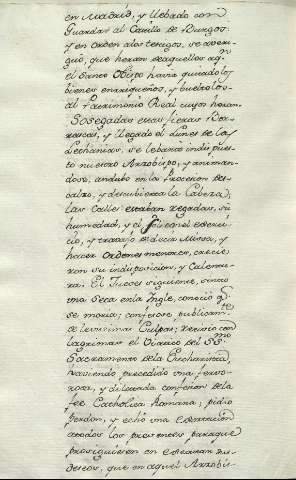 en Madrid, y llebado con
Guardas al Castillo de Burgos.
Y en orden a los tesugos, se aberi-
guò, que heran de aquellos
el Santo Obpo havia quitado los
bienes enriqueños, y bueltolos
al Patrimonio Real cuyos heran.
Sosegadas estas fieras Bor-
rascas, y llegado el Lunes de las
Lethanias, se lebantò indispues-
to nuestro Arzobispo, y animan-
dose, andubo en la Procesion des-
calzo, y descubierta la Cabeza;
las Calles estaban regadas, su
humedad, y el con el exerci-
cio, y trabajo de decir Missa, y
hacer Ordenes menores, crecie-
ron su indisposicion, y Calentu-
ra. El Jueves siguiente, sintio
una Seca en la Ingle, conociò q.
se moria; confesose publicam.te
de levissimas Culpas; reciviò con
lagrimas el Viatico del SS.mo
Sacramento de la Eucharistia,
haviendo precedido una fervo-
rosa, y dilatada confesion de la
fee Catholica Romana; pidio
perdon, y echò una
a todos los presentes para que
prosiguiesen en executar sus
deseos, que en aquel Arzobis-